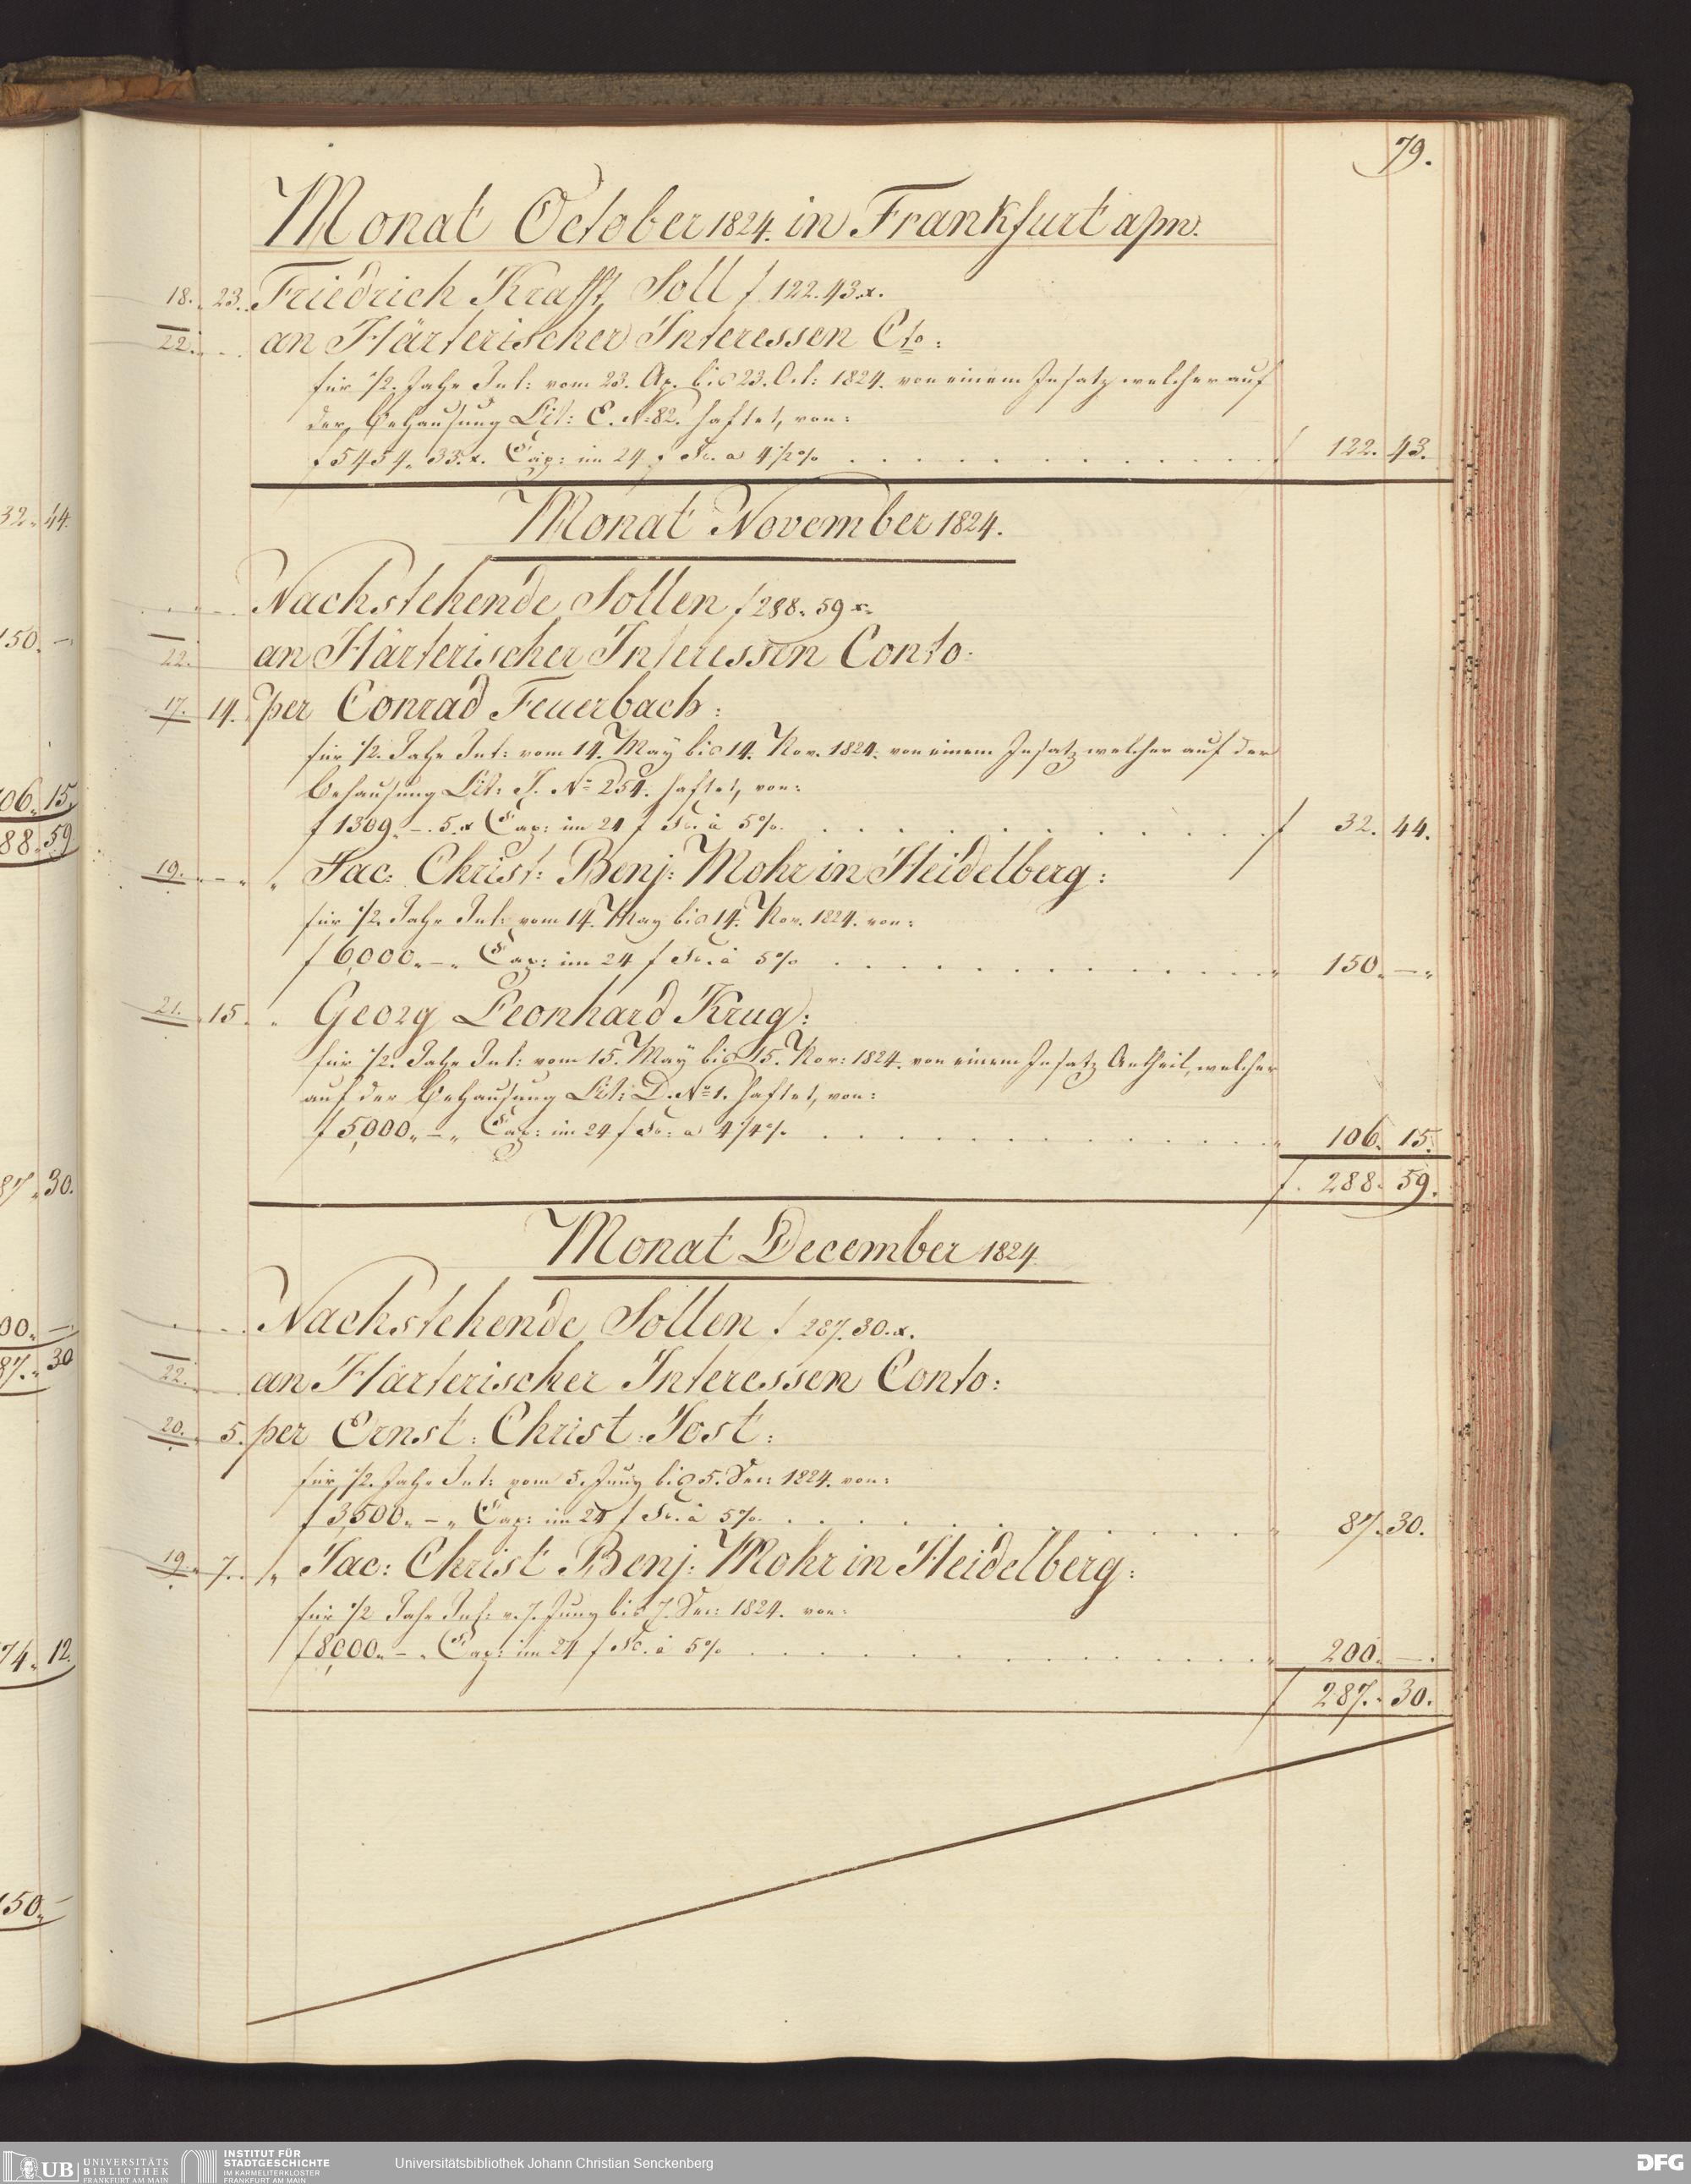 79.
Monat October 1824. in Frankfurt a/m.
18. 23. Friedrich Krafft, Soll f 122. 43. x.
22. an Härterischer Interessen Cto:
für 1/2. Jahr Int: vom 23. Ap. bis 23. Oct: 1824. von einem Insatz welcher auf
der Behausung Lit: E. No 82. haftet, von:
f 5454. 33. x. Cap: im 24 f Fs. a 4 1/2 % f 122. 43.
Monat November 1824.
Nachstehende Sollen f 288. 59 x.
22. an Härterischer Interessen Conto:
17. 14. per Conrad Feuerbach:
für 1/2. Jahr Int: vom 14. May bis 14. Nov. 1824. von einem Insatz welcher auf der
Behausung Lit: J. No 254. haftet, von:
f 1309. – . 5. x Cap: im 24 f Fs. à 5 %. f 32. 44.
19. – " Jac: Christ: Benj: Mohr in Heidelberg:
für 1/2. Jahr Int: vom 14. May bis 14. Nov. 1824. von:
f 6,000. – " Cap: im 24 f Fs. à 5 % " 150. – "
21. 15. " Georg Leonhard Krug:
für 1/2. Jahr Int: vom 15. May bis 15. Nov: 1824. von einem Insatz Antheil, welcher
auf der Behausung Lit: D. No 1. haftet, von:
f 5,000. – " Cap: im 24 f Fs: a 4 1/4 % " 106. 15.
f. 288. 59.
Monat December 1824
Nachstehende Sollen f 287. 30. x.
22. an Härterischer Interessen Conto:
20. 5. per Ernst: Christ: Jost:
für 1/2. Jahr Int: vom 5. Juny bis 5. Dec: 1824. von:
f 3,500. – " Cap: im 24 f Fs. à 5 %. " 87. 30.
19. 7. " Jac: Christ Benj: Mohr in Heidelberg:
für 1/2 Jahr Int: v. 7. Juny bis 7. Dec: 1824. von:
f 8,000. – " Cap: im 24 f Fs. à 5 % " 200. – .
f 287. 30.
32. 44.
150. –
106. 15.
88. 59
87. 30.
00. –
87. 30
74. 12.
150. –
UB UNIVERSITÄTS
BIBLIOTHEK
FRANKFURT AM MAIN
INSTITUT FÜR
STADTGESCHICHTE
IM KARMELITERKLOSTER
FRANKFURT AM MAIN
Universitätsbibliothek Johann Christian Senckenberg
DFG